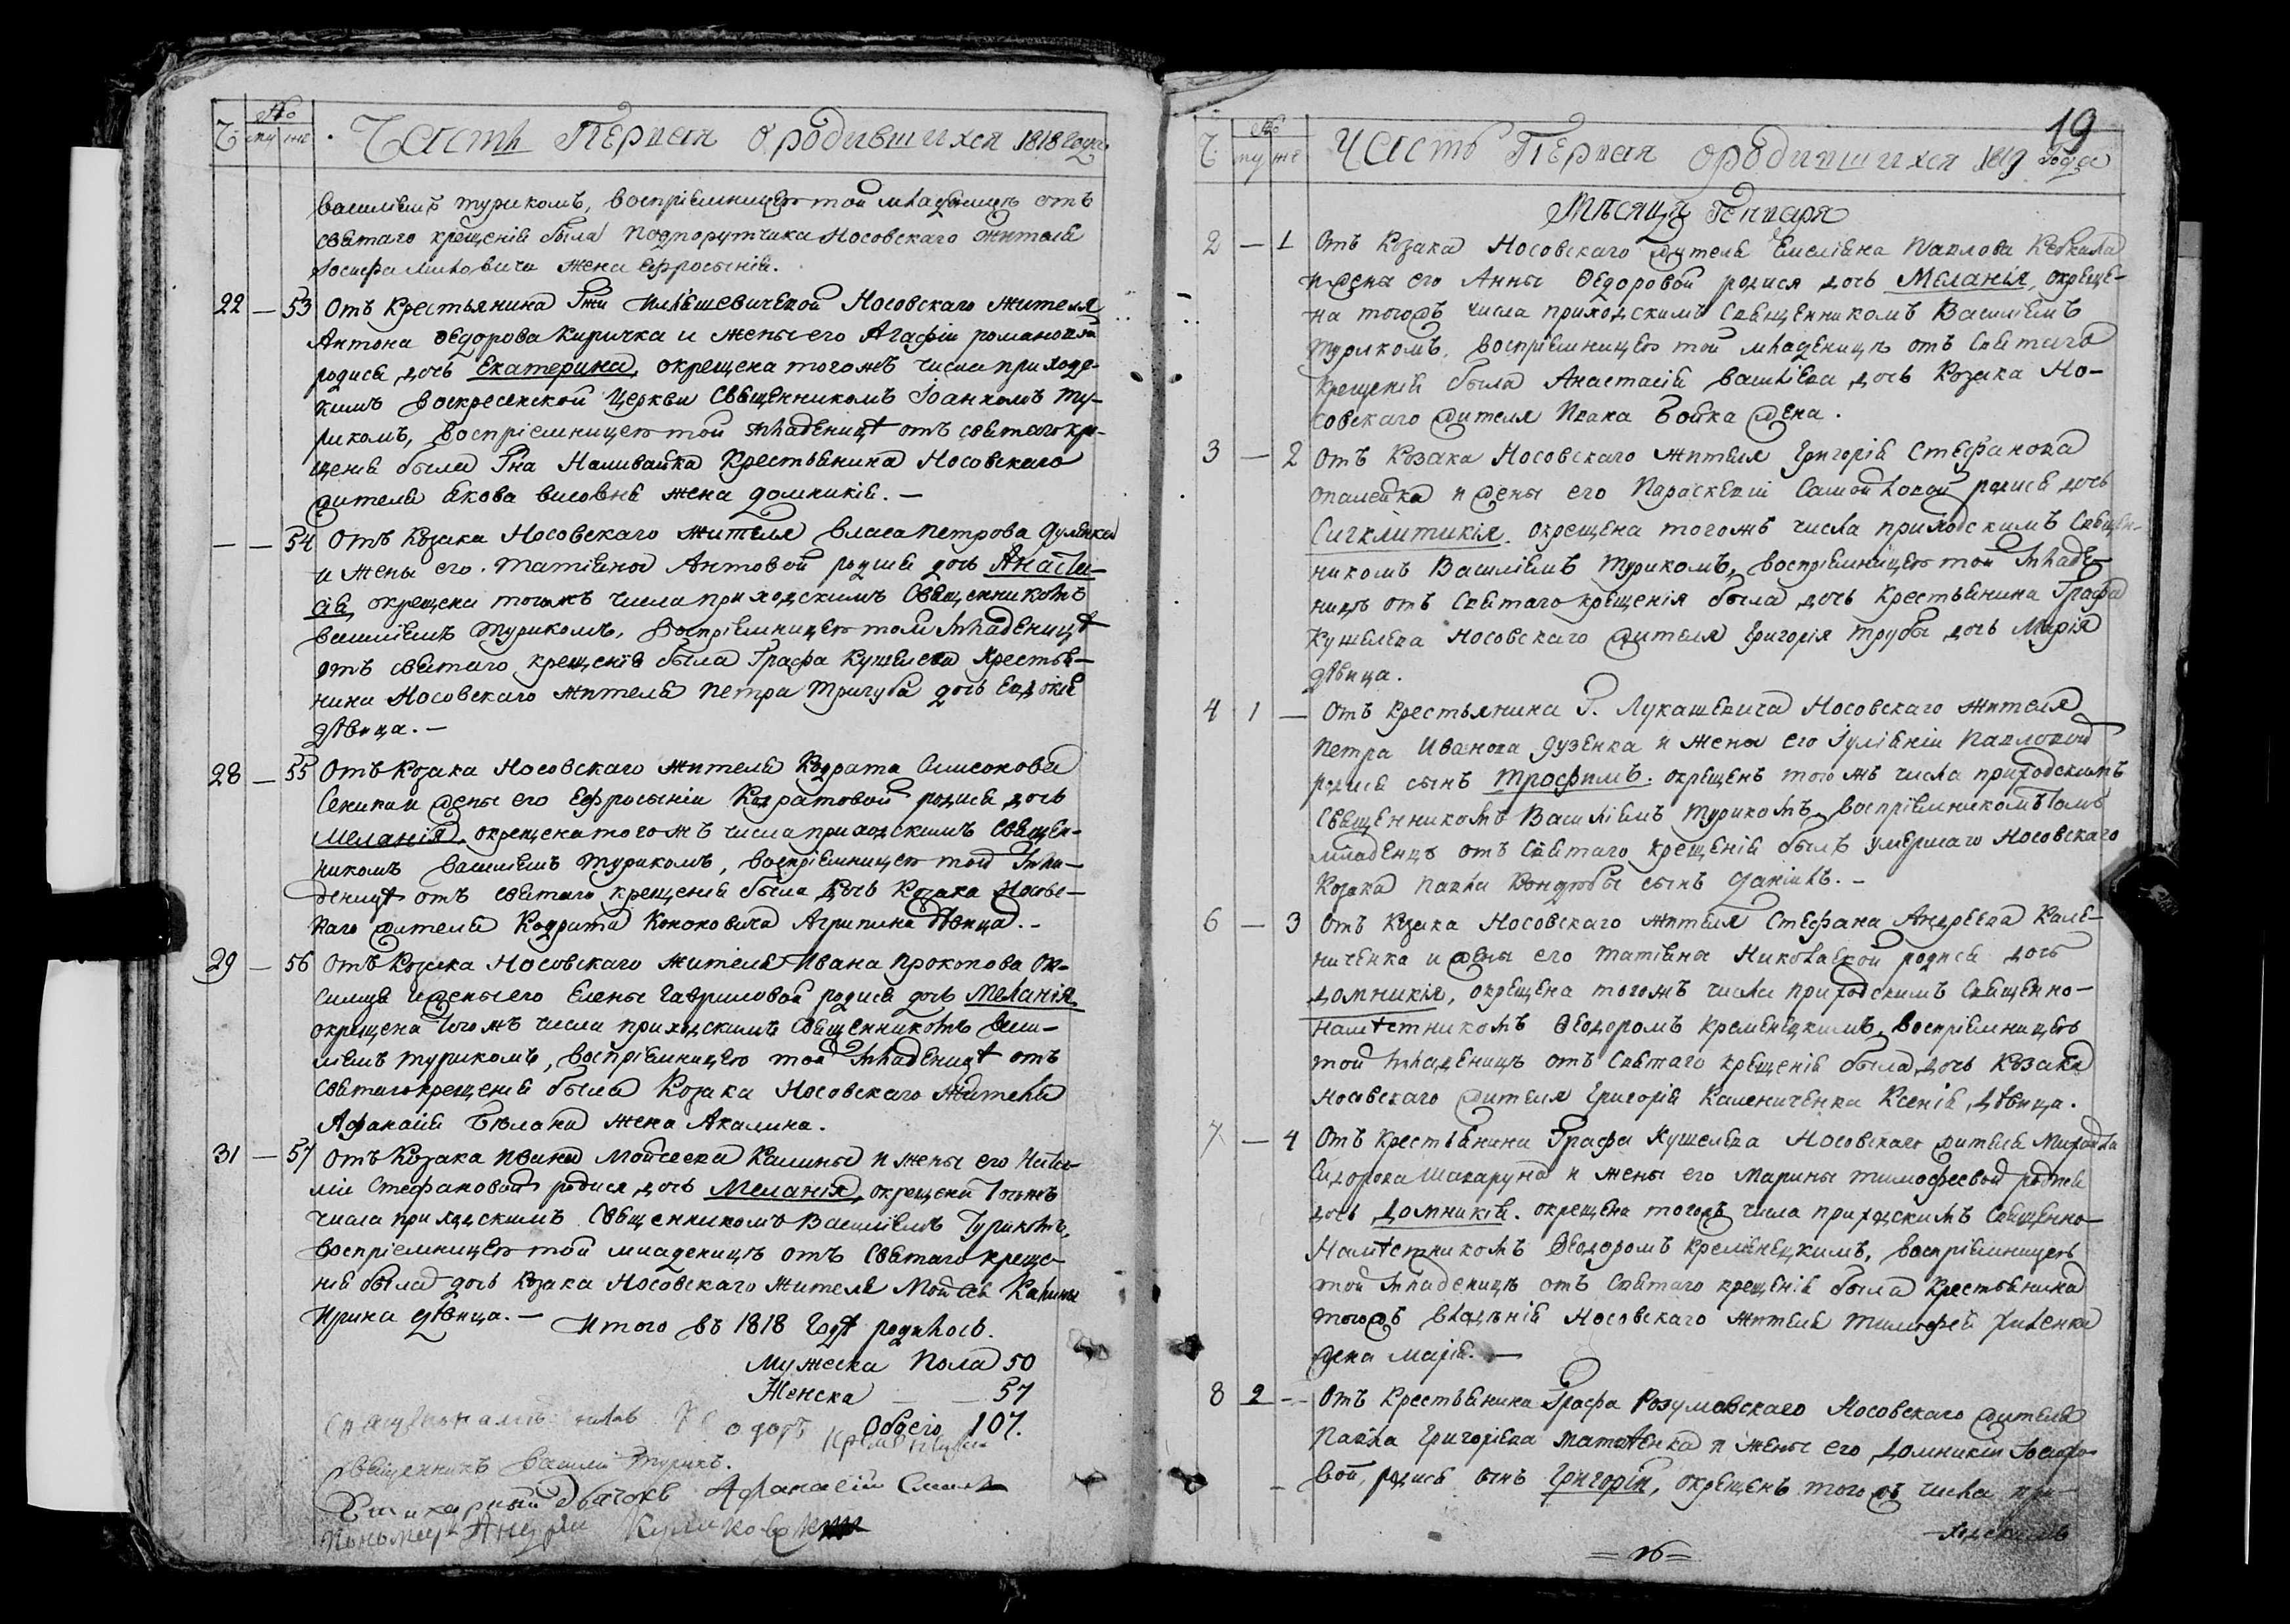 Ч: № му же Часть Первая о родившихся 1818 года
василіемъ туркомъ, воспріемницею той младеницѣ отъ
святаго крещенія была Подпорутчика Носовскаго жителя
Іосифа жена Ефросинія.
22 — 53 Отъ Крестьянина Гжи Носовскаго жителя
Антона Ѳедорова Киричка и жены его Агафіи романовой
родися дочь Екатерина, окрещена тогожъ числа приходс-
кимъ воскресенской Церкви Священникомъ Іоанномъ Ту-
рикомъ, воспріемницею той младеницѣ отъ святаго кре-
щенія была Гна Наливайка Крестьянина Носовскаго
жителя Якова жена домникія. —
— — 54 Отъ Козака Носовскаго жителя власа Петрова
и жены его Татіяны Антовой родися дочь Анаста-
сія, окрещена тогожъ числа приходскимъ Священникомъ
василіемъ Турикомъ, воспріемницею той младеницѣ
отъ святаго крещенія была Графа Кушелева Крестья-
нина Носовскаго жителя Петра Тригуба дочь Евдокія
дѣвица. —
28 — 55 Отъ Козака Носовскаго жителя Кодрата
и жены его Ефросыніи Кодратовой родися дочь
Меланія, окрещена тогожъ числа приходскимъ Священ-
никомъ василіемъ Турикомъ, воспріемницею той мла-
деницѣ отъ святаго крещенія была дочь Козака Носовс-
каго жителя Кодрата Кононовича Агрипина дѣвица. -
29 — 56 Отъ Козака Носовскаго жителя Ивана Прокопова
и жены его Елены Гавриловой родися дочь Меланія
окрещена тогожъ числа приходскимъ Священникомъ васи-
ліемъ туркомъ, воспріемницею той младеницѣ отъ
Святаго крещенія была Козака Носовскаго Жителя
Афанасія Бѣлана жена Акилина.
31 — 57 Отъ Козака Ивана Мойсеева Калины и жены его Ната-
ліи Стефановой родися дочь Меланія, окрещена тогожъ
числа приходскимъ Священникомъ Василіемъ Турикомъ,
воспріемницею той младеницѣ отъ Святаго креще-
нія была дочь Козака Носовскаго Жителя Мойсея Калины
Ирина дѣвица. — Итого въ 1818 годѣ родилось.
Мужеска пола 50
Женска — — 57
Обоего 107.
Священникъ Василій Турикъ.
Стихарный Дьячокъ Афанасій
Пономарь Андрей
19
Ч: № му же Часть Первая о родившихся 1819 года
Мѣсяцъ Генваря
2 — 1 Отъ Козака Носовскаго жителя Емеліяна Павлова
и жены его Анны Ѳедоровой родися дочь Меланія, окреще-
на тогожъ числа приходскимъ Священникомъ Василіемъ
Турикомъ, воспріемницею той младеницѣ отъ Святаго
крещенія была Анастасія василіева дочь Козака Но-
совскаго жителя Ивана Бойка жена.
3 — 2 Отъ Козака Носовскаго жителя Григорія Стефанова
и жены его Параскевіи Самойловой родися дочь
Сигклитикія, окрещена тогожъ числа приходскимъ Священ-
никомъ Василіемъ Турикомъ, воспріемницею той младе-
ницѣ отъ Святаго крещенія была дочь Крестьянина Графа
Кушелева Носовскаго жителя Григорія Трубы дочь Марія
дѣвица.
4 1 — Отъ Крестьянина Г. Лукашевича Носовскаго жителя
Петра Иванова Дузенка и жены его Іуліяніи Павловой
родися сынъ Трофимъ, окрещенъ тогожъ числа приходскимъ
Священникомъ Василіемъ Турикомъ, воспріемникомъ томъ
младенцѣ отъ Святаго крещенія былъ умершаго Носовскаго
Козака Павла Кондзюбы сынъ Даніилъ. -
6 — 3 Отъ Козака Носовскаго жителя Стефана Андреева Кале-
ниченка и жены его Татіяны Николаевой родися дочь
домникія, окрещена тогожъ числа приходскимъ Священно-
намѣстникомъ Ѳеодоромъ Кременецкимъ, воспріемницею
той младеницѣ отъ Святаго крещенія была дочь Козака
Носовскаго жителя Григорія Калениченка Ксенія, дѣвица.
7 — 4 Отъ Крестьянина Графа Кушелева Носовскаго жителя Михайла
Сидорова Шакаруна и жены его Марины Тимофеевой родися
дочь домникія, окрещена тогожъ числа приходскимъ Священно-
Намѣстникомъ Ѳеодоромъ Кременецкимъ, воспріемницею
той младеницѣ отъ Святаго крещенія была Крестьянина
тогожъ владѣнія Носовскаго жителя Тимофея
жена Марія. —
8 2 — Отъ Крестьянина Графа Розумовскаго Носовскаго жителя
Павла Григоріева и жены его Домникіи Іосифо-
вой, родися сынъ Григорій, окрещенъ тогожъ числа при-
ходскимъ